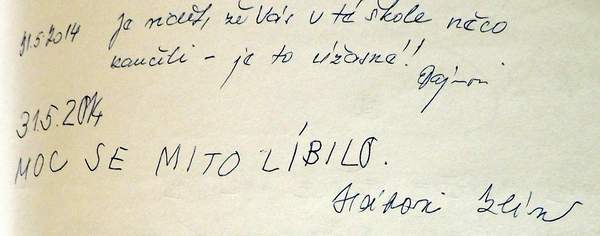 31.5.2014 Je vidět, že Vás v té škole něco
naučili - je to úžasné!!
31.5.2014
MOC SE MI TO LÍBILO.